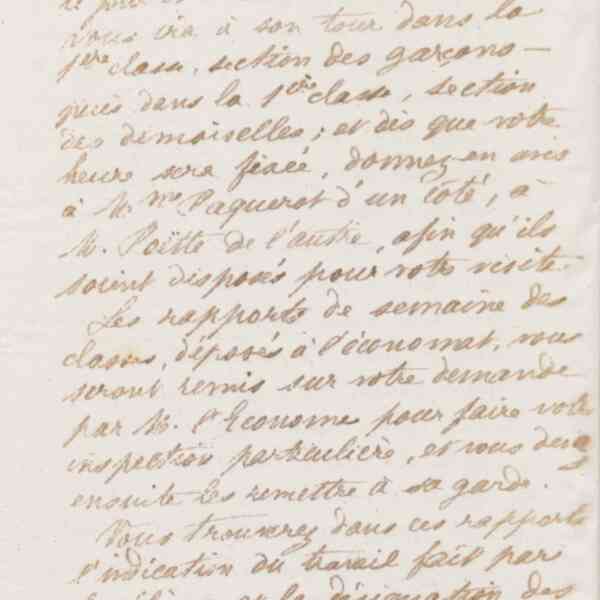 vous ira à son tour dans la
1ère classe, section des garçons —
puis dans la 1ère classe, section
des demoiselles; et dès que votre
heure sera fixée, donnez-en avis
à M.me Paquerot d'un côté, à
M. de l'autre, afin qu'ils
soient disposés pour votre visite.
Les rapports de semaine des
classes, déposés à l'économat, vous
seront remis sur votre demande
par M. l'Econome pour faire votre
inspection particulière, et vous devez
ensuite les remettre à sa garde.
Vous trouverez dans ces rapports
l'indication du travail fait par
et la désignation des